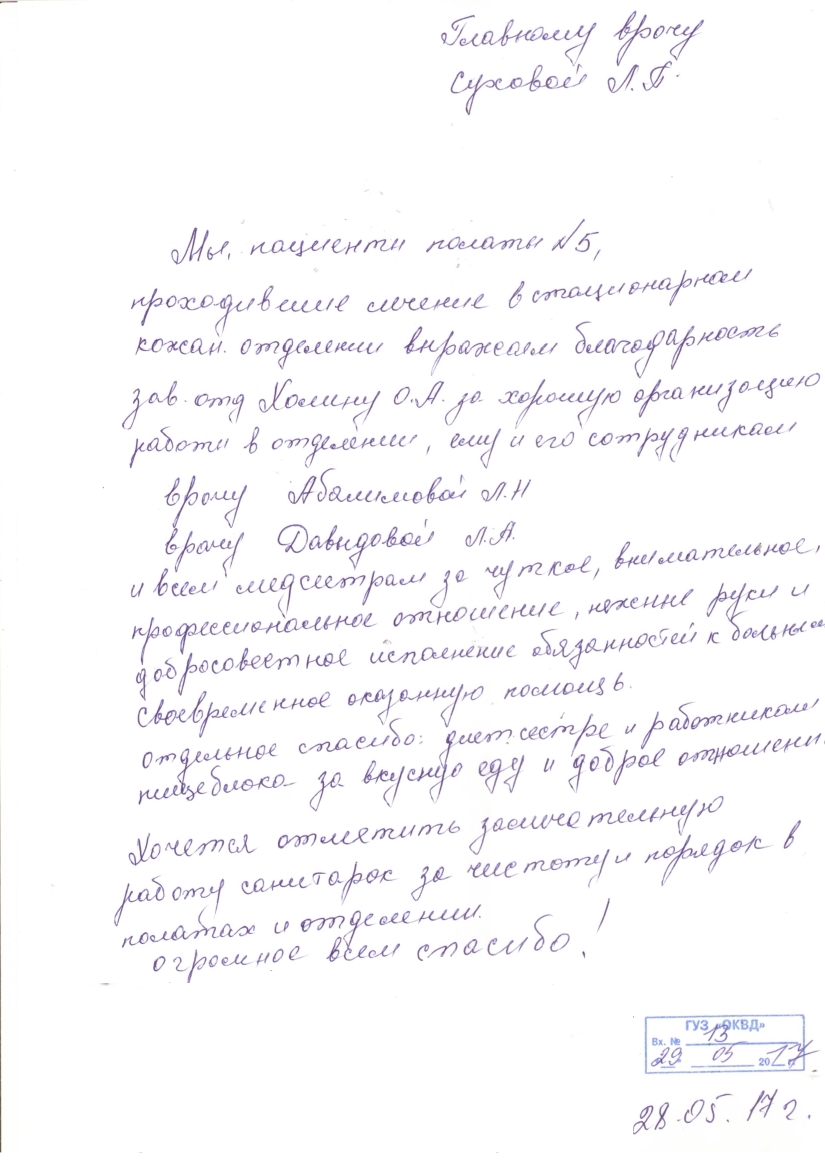 Главному врачу
Суховой Л.П.
Мы, пациенты палаты №5,
проходившие лечение в стационарном
кожан. отделении выражаем благодарность
зав. отд Холину О.А. за хорошую организацию
работы в отделении, ему и его сотрудникам
врачу Абалимовой Л.Н
врачу Давыдовой Л.А.
и всем медсестрам за чуткое, внимательное,
профессиональное отношение, нежные руки и
добросовестное исполнение обязанностей к больным
своевременное оказанную помощь.
отдельное спасибо: диетсестре и работникам
пищеблока за вкусную еду и доброе отношени
Хочется отметить замечательную
работу санитарок за чистоту и порядок в
палатах и отделении.
огромное всем спасибо!
ГУЗ «ОКВД»
Вх. № 13
29 05 2017
28.05.17 г.